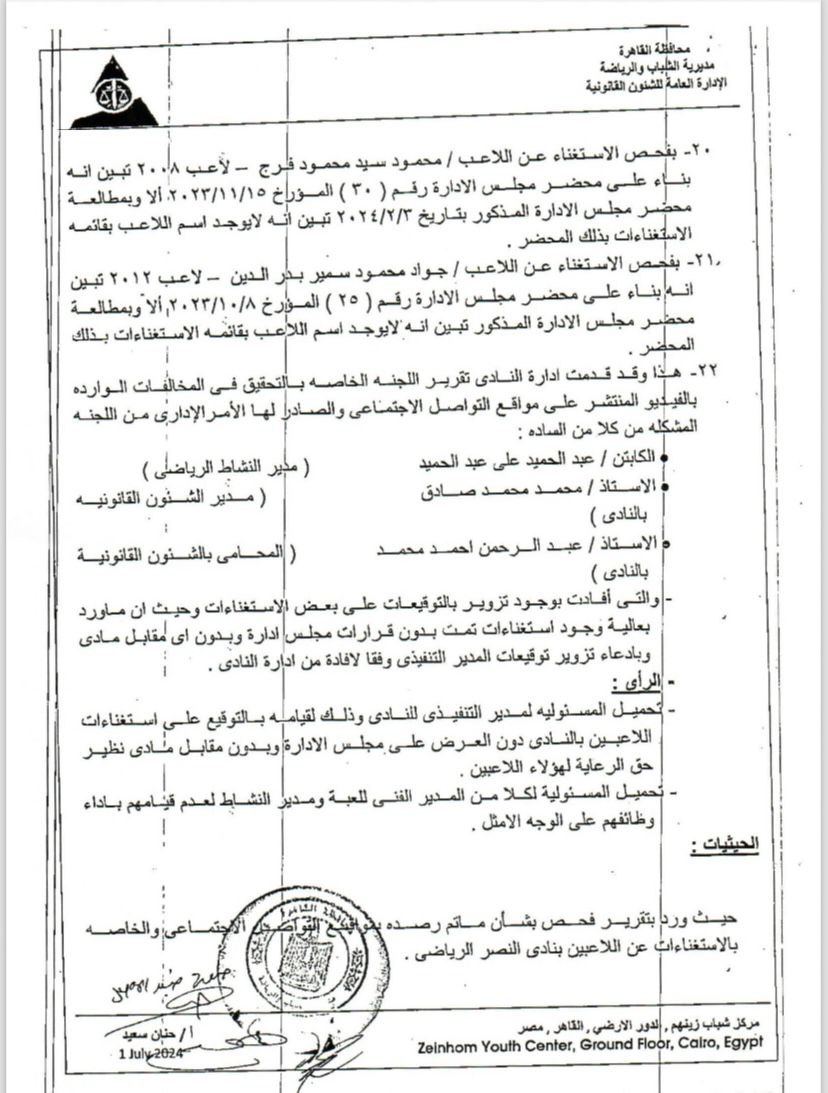 محافظة القاهرة
مديرية الشباب والرياضة
الإدارة العامة للشئون القانونية
٢٠- بفحص الاستغناء عن اللاعب / محمود سيد محمود فرج – لاعب ٢٠٠٨ تبين انه
بناء على محضر مجلس الادارة رقم ( ٣٠ ) المؤرخ ٢٠٢٣/١١/١٥ ألا وبمطالعة
محضر مجلس الادارة المذكور بتاريخ ٢٠٢٤/٢/٣ تبين انه لايوجد اسم اللاعب بقائمه
الاستغناءات بذلك المحضر .
٢١- بفحص الاستغناء عن اللاعب / جواد محمود سمير بدر الدين – لاعب ٢٠١٢ تبين
انه بناء على محضر مجلس الادارة رقم ( ٢٥ ) المؤرخ ٢٠٢٣/١٠/٨ ألا وبمطالعة
محضر مجلس الادارة المذكور تبين انه لايوجد اسم اللاعب بقائمه الاستغناءات بذلك
المحضر .
٢٢- هذا وقد قدمت ادارة النادى تقرير اللجنه الخاصه بالتحقيق فى المخالفات الوارده
بالفيديو المنتشر على مواقع التواصل الاجتماعى والصادر لها الأمر الإدارى من اللجنه
المشكله من كلا من الساده :
• الكابتن / عبد الحميد على عبد الحميد ( مدير النشاط الرياضى )
• الاستاذ / محمد محمد صادق ( مدير الشئون القانونيه
بالنادى )
• الاستاذ / عبد الرحمن احمد محمد ( المحامى بالشئون القانونية
بالنادى )
- والتى أفادت بوجود تزوير بالتوقيعات على بعض الاستغناءات وحيث ان ماورد
بعالية وجود استغناءات تمت بدون قرارات مجلس ادارة وبدون اى مقابل مادى
وبادعاء تزوير توقيعات المدير التنفيذى وفقا لافادة من ادارة النادى .
- الرأى :
- تحميل المسئوليه لمدير التنفيذى للنادى وذلك لقيامه بالتوقيع على استغناءات
اللاعبين بالنادى دون العرض على مجلس الادارة وبدون مقابل مادى نظير
حق الرعاية لهؤلاء اللاعبين .
- تحميل المسئولية لكلا من المدير الفنى للعبة ومدير النشاط لعدم قيامهم باداء
وظائفهم على الوجه الامثل .
الحيثيات :
حيث ورد بتقرير فحص بشأن ماتم رصده بمواقع التواصل الاجتماعى والخاصه
بالاستغناءات عن اللاعبين بنادى النصر الرياضى .
أ/ حنان سعيد
1 July 2024
مركز شباب زينهم , الدور الارضي , القاهر , مصر
Zeinhom Youth Center, Ground Floor, Cairo, Egypt